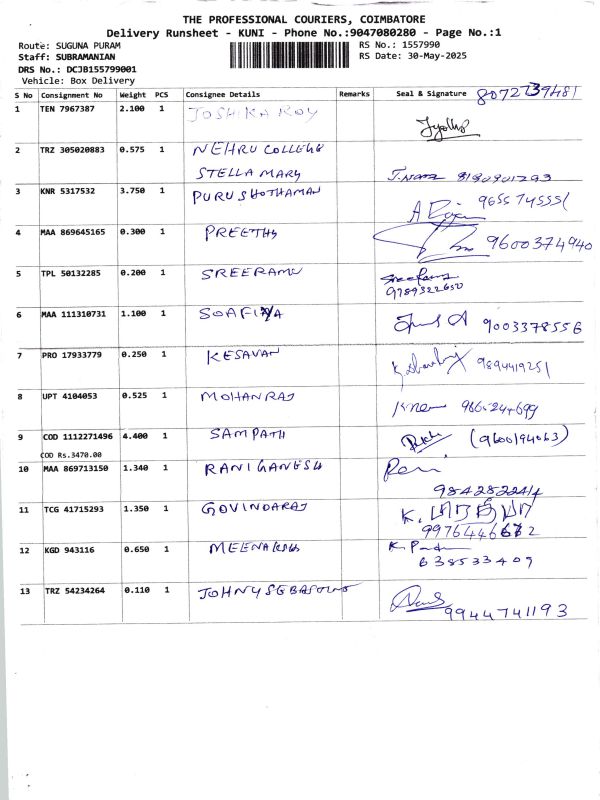 THE PROFESSIONAL COURIERS, COIMBATORE
Delivery Runsheet - KUNI - Phone No.:9047080280 - Page No.:1
Route: SUGUNA PURAM
RS No.: 1557990
Staff: SUBRAMANIAN
RS Date: 30-May-2025
DRS No.: DCJB155799001
Vehicle: Box Delivery
S No Consignment No Weight PCS Consignee Details Remarks Seal & Signature 8072739481
1 TEN 7967387 2.100 1 JOSHIKA ROY
2 TRZ 305020883 0.575 1 NEHRU COLLEGE
STELLA MARY 8180901293
3 KNR 5317532 3.750 1 PURUSHOTHAMAN 9655745551
4 MAA 869645165 0.300 1 PREETHY 9600374940
5 TPL 50132285 0.200 1 SREERAMU
9789322650
6 MAA 111310731 1.100 1 SOAFIYA 9003378556
7 PRO 17933779 0.250 1 KESAVAN 9894419251
8 UPT 4104053 0.525 1 MOHANRAJ
9 COD 1112271496 4.400 1 SAMPATH (9600194063)
COD Rs.3470.00
10 MAA 869713150 1.340 1 RANI GANESH
9842822414
11 TCG 41715293 1.350 1 GOVINDARAJ
12 KGD 943116 0.650 1
638533409
13 TRZ 54234264 0.110 1
9944741193